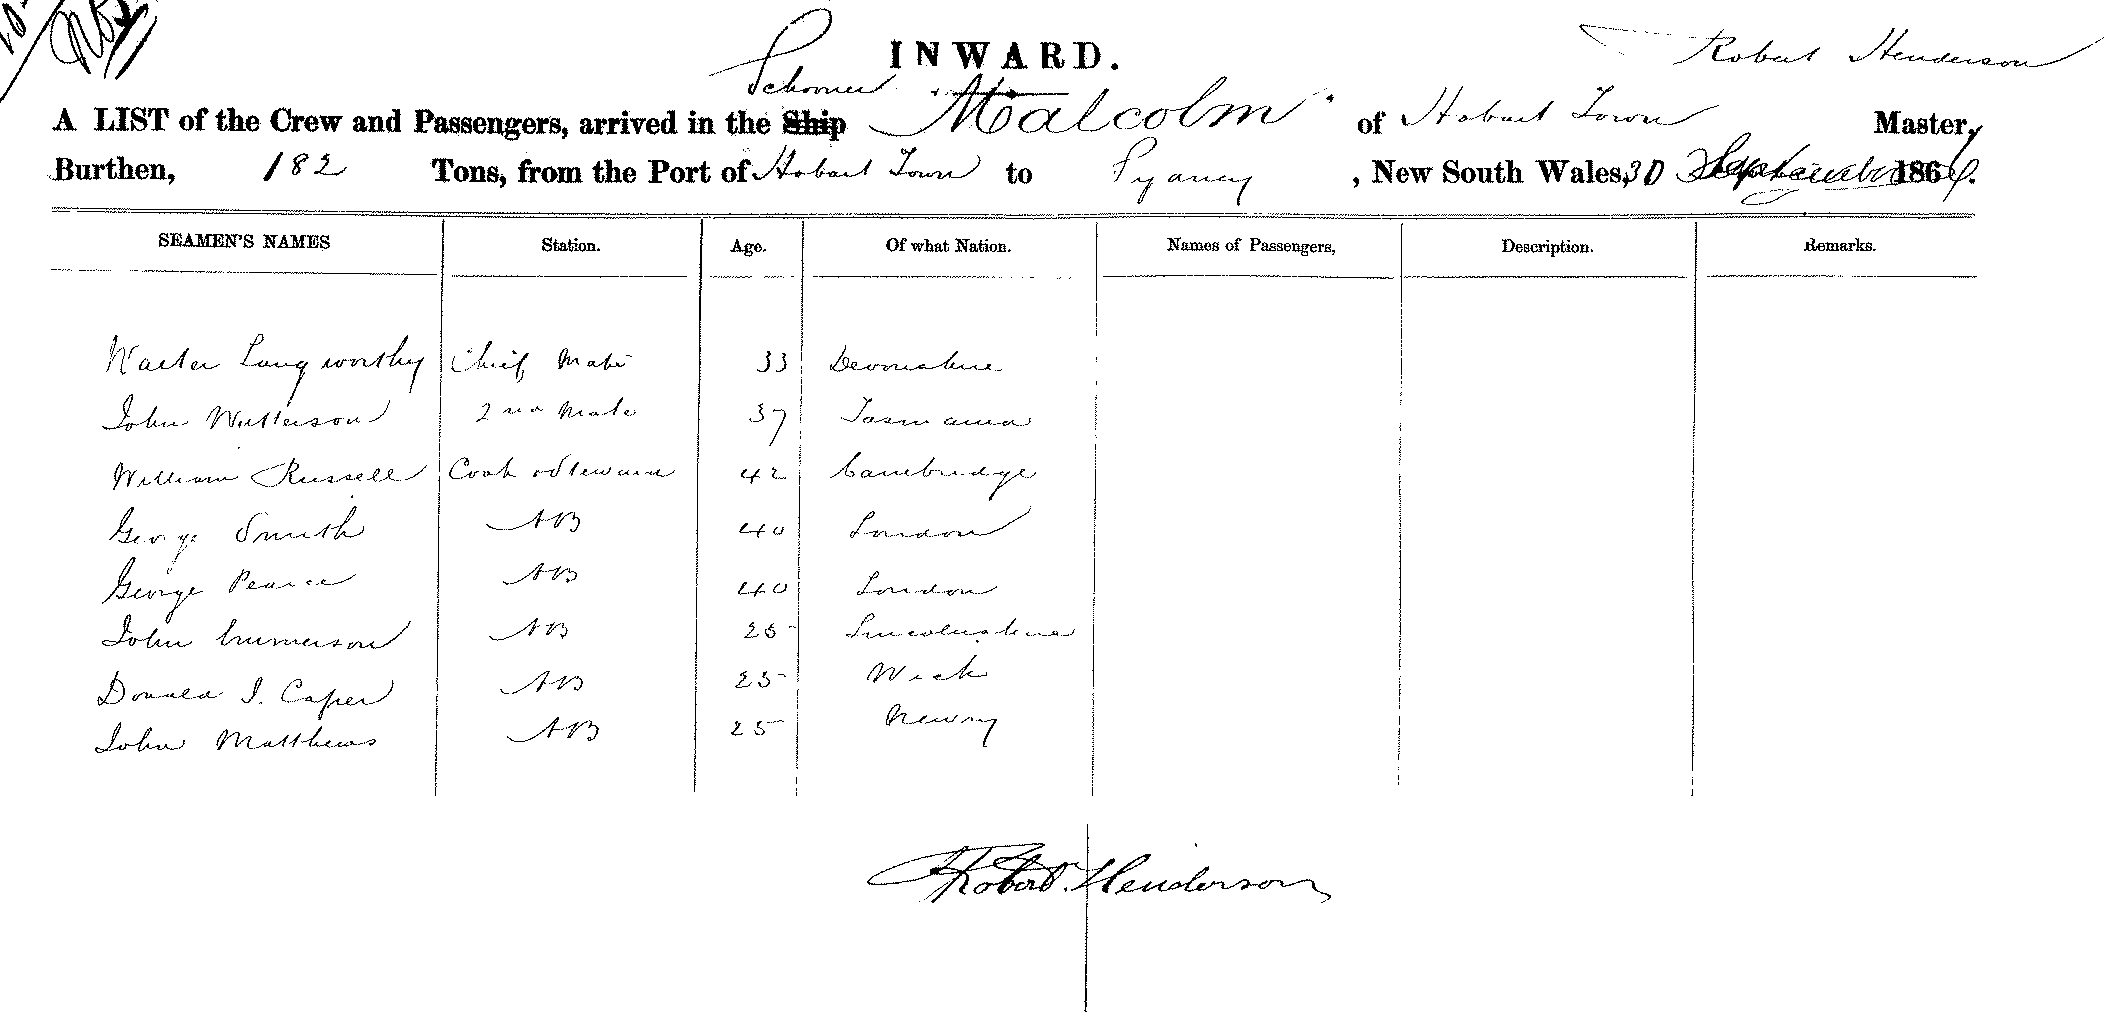 INWARD.
Robert Henderson
Schooner
A LIST of the Crew and Passengers, arrived in the Ship "Malcolm" of Hobart Town Master,
Burthen, 182 Tons, from the Port of Hobart Town to Sydney, New South Wales, 30 September 186
SEAMEN'S NAMES Station. Age. Of what Nation. Names of Passengers, Description. Remarks.
Walter Langworthy Chief Mate 33 Devonshire
John Watterson 2nd Mate 37 Tasmania
William Russell Cook & Steward 42 Cambridge
George Smith AB 40 London
George Pearce AB 40 London
John AB 25 Lincolnshire
Donald J. Caper AB 25 Wick
John Matthews AB 25 Newry
Robert Henderson